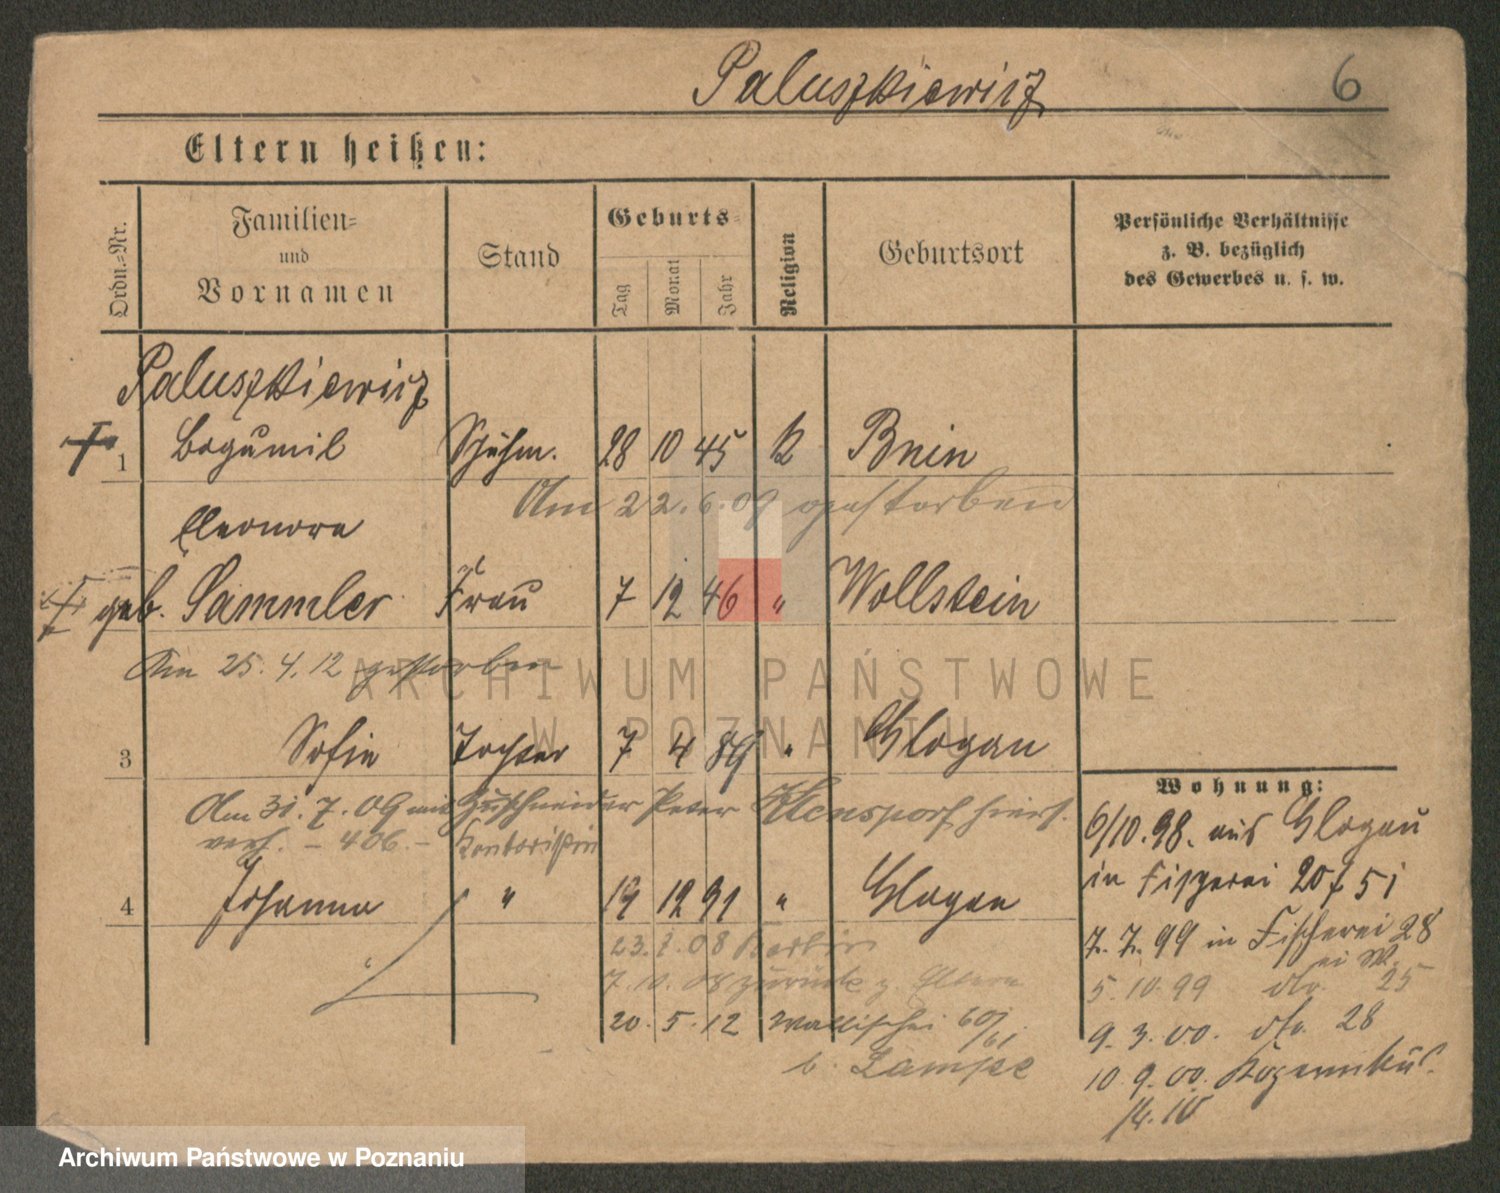 Paluszkiewicz 6
Eltern heißen:
Ordn.-Nr.
Familien-
und
Vornamen
Stand
Geburts-
Tag
Monat
Jahr
Religion
Geburtsort
Persönliche Verhältnisse
z. B. bezüglich
des Gewerbes u. s. w.
Paluszkiewicz
1 Bogumil Schuhm. 28 10 45 K Bnin
Am 22.6.09 gestorben
Eleonora
geb. Sammler Frau 7 12 46 " Wollstein
Am 25.4.12 gestorben
3 Sofie Tochter 7 4 89 " Glogau
Am 31.7.09 mit Zuschneider Peter hiers.
verh. – 406. – Kontoristin
4 Johanna " 19 12 91 " Glogau
23. 08 Berlin
7.10.08 zurück z. Eltern
20.5.12 Wallischei 60/61
b. Lampe
Wohnung:
6/10.98. aus Glogau
in Fischerei 20 51
7.7.99 in Fischerei 28
5.10.99 do. 25
9.3.00. do. 28
10.9.00.
14.10
ARCHIWUM PAŃSTWOWE
W POZNANIU
Archiwum Państwowe w Poznaniu